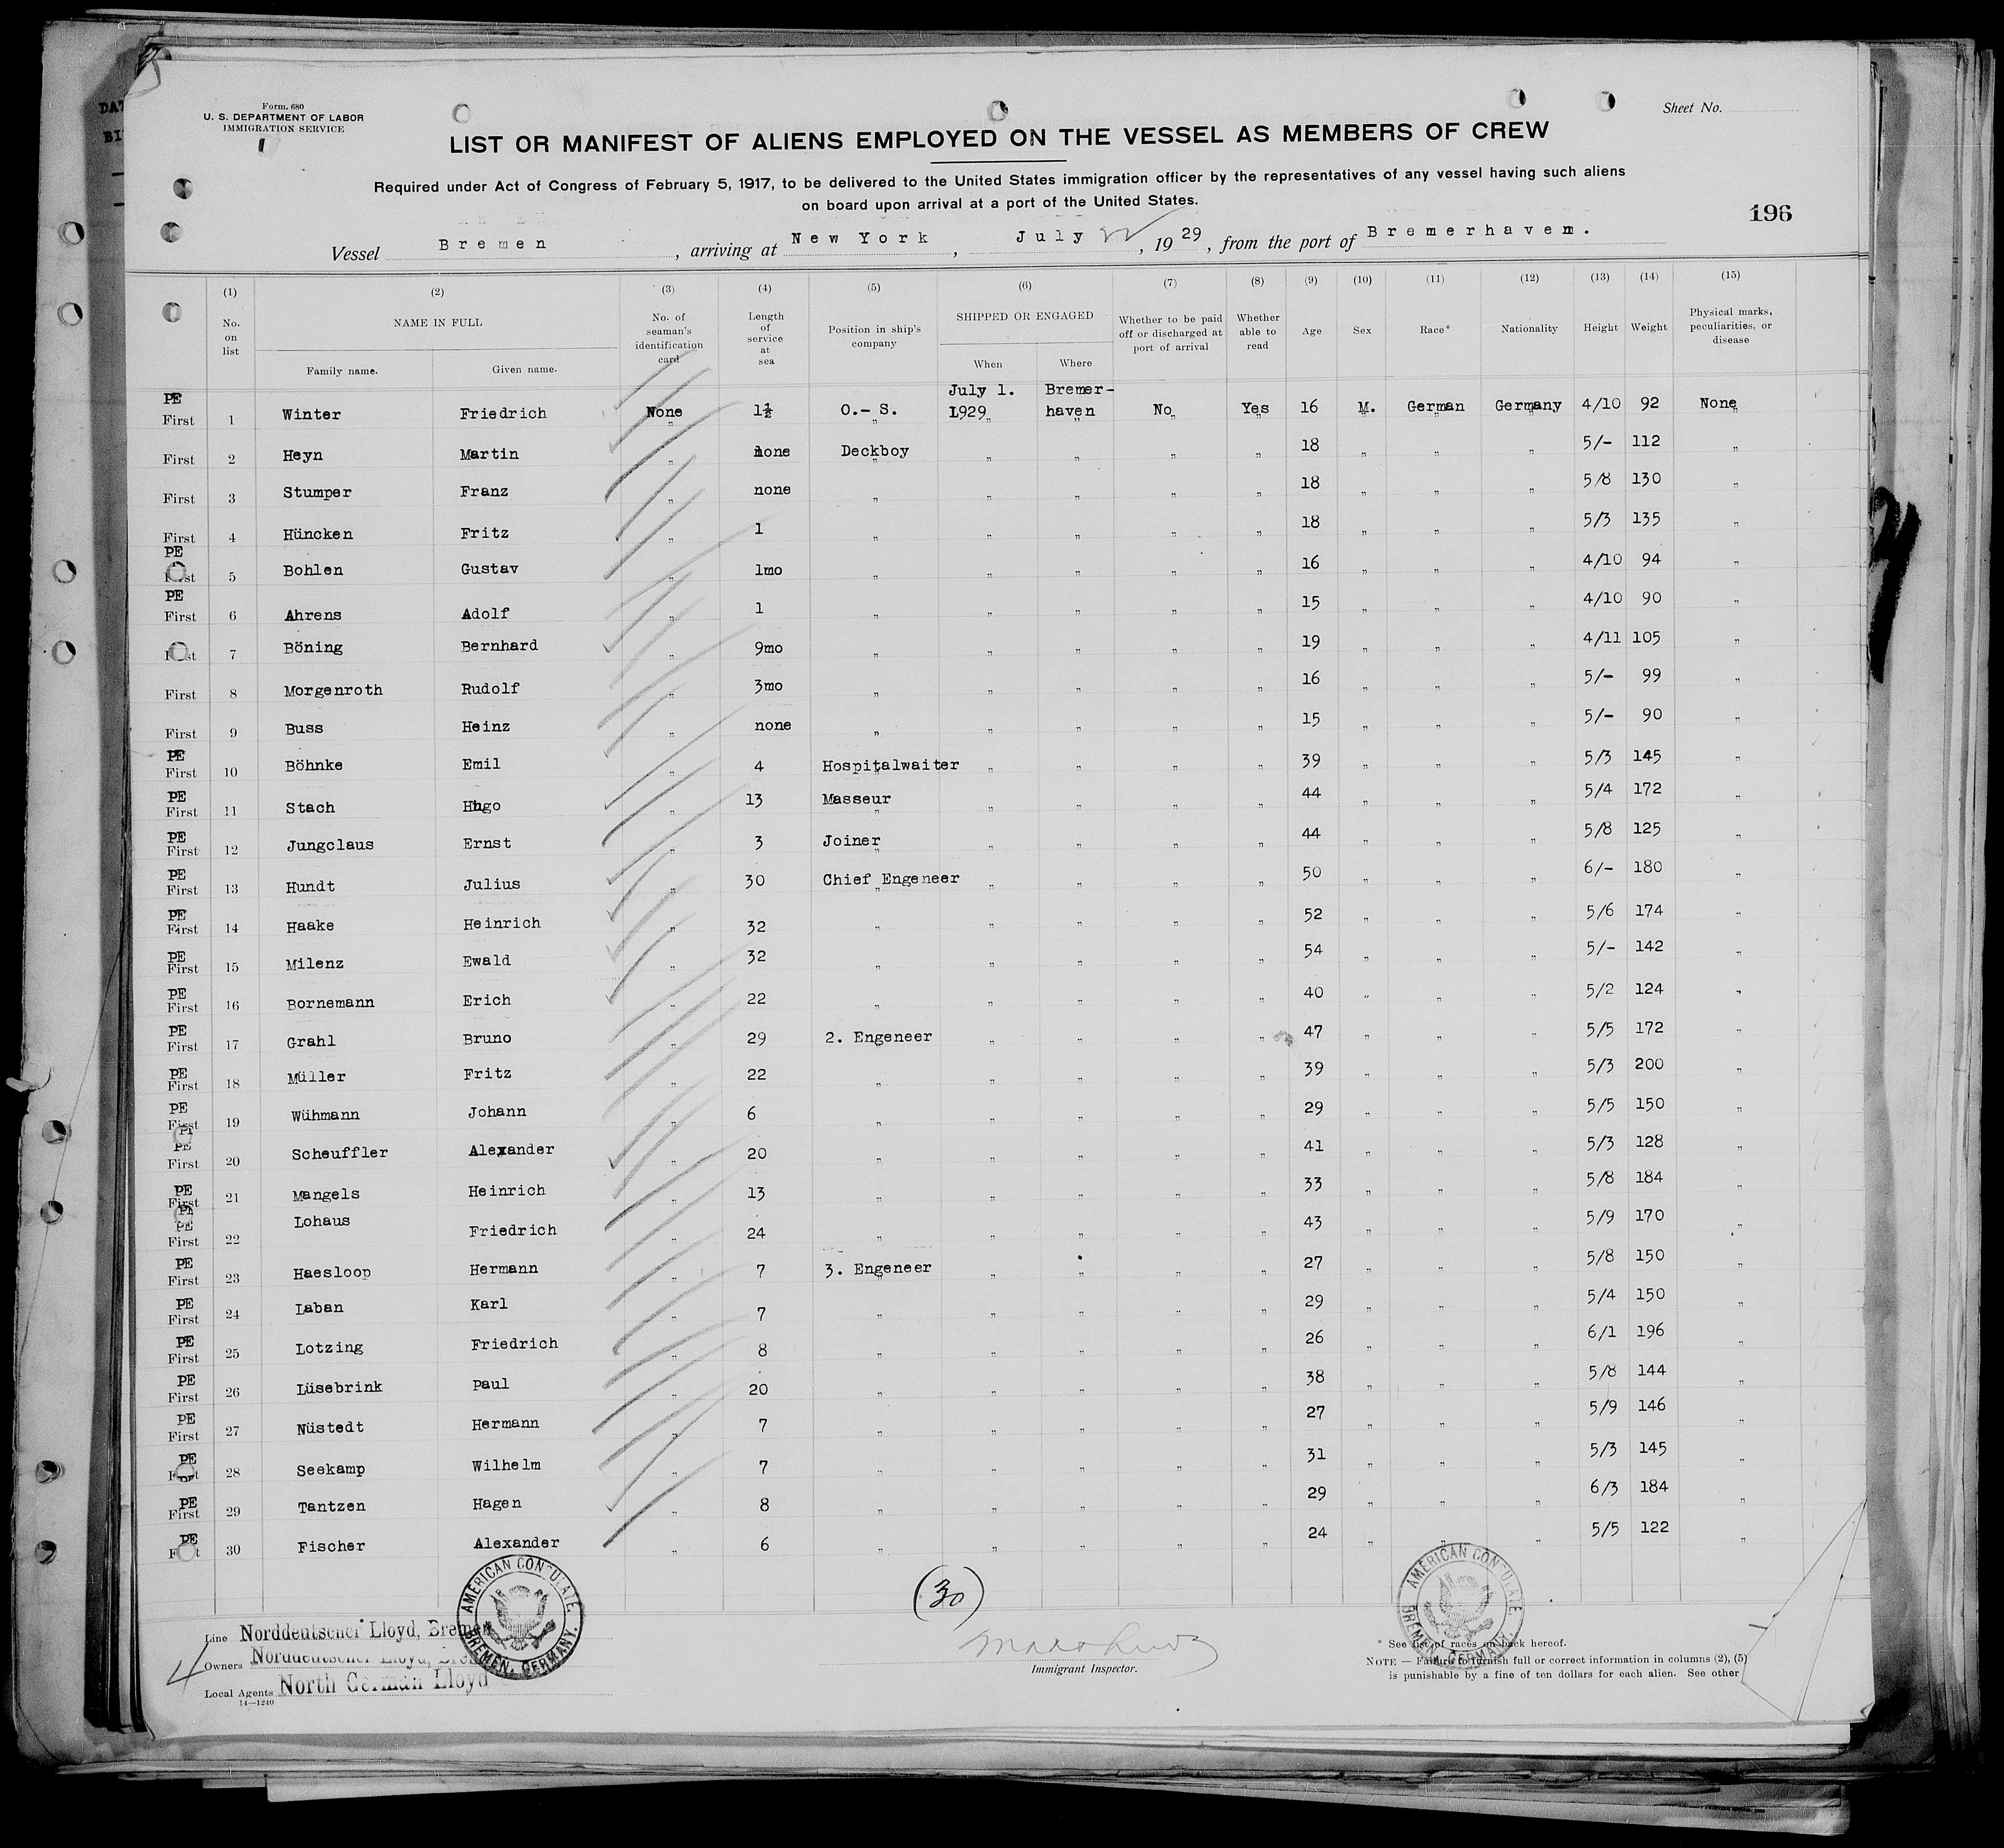 Form. 680
U. S. DEPARTMENT OF LABOR
IMMIGRATION SERVICE
Sheet No.
LIST OR MANIFEST OF ALIENS EMPLOYED ON THE VESSEL AS MEMBERS OF CREW
Required under Act of Congress of February 5, 1917, to be delivered to the United States immigration officer by the representatives of any vessel having such aliens
on board upon arrival at a port of the United States.
196
Vessel Bremen, arriving at New York, July 22, 1929, from the port of Bremerhaven.
(1) (2) (3) (4) (5) (6) (7) (8) (9) (10) (11) (12) (13) (14) (15)
No. on list
NAME IN FULL
Family name. Given name.
No. of seaman's identification card
Length of service at sea
Position in ship's company
SHIPPED OR ENGAGED
When Where
Whether to be paid off or discharged at port of arrival
Whether able to read
Age
Sex
Race*
Nationality
Height
Weight
Physical marks, peculiarities, or disease
PE First 1 Winter Friedrich None 1½ O.- S. July 1. 1929 Bremer-haven No Yes 16 M. German Germany 4/10 92 None
First 2 Heyn Martin " none Deckboy " " " " 18 " " " 5/- 112 "
First 3 Stumper Franz " none " " " " " 18 " " " 5/8 130 "
First 4 Hüncken Fritz " 1 " " " " " 18 " " " 5/3 135 "
PE First 5 Bohlen Gustav " 1mo " " " " " 16 " " " 4/10 94 "
PE First 6 Ahrens Adolf " 1 " " " " " 15 " " " 4/10 90 "
First 7 Böning Bernhard " 9mo " " " " " 19 " " " 4/11 105 "
First 8 Morgenroth Rudolf " 3mo " " " " " 16 " " " 5/- 99 "
First 9 Buss Heinz " none " " " " " 15 " " " 5/- 90 "
PE First 10 Böhnke Emil " 4 Hospitalwaiter " " " " 39 " " " 5/3 145 "
PE First 11 Stach Hugo " 13 Masseur " " " " 44 " " " 5/4 172 "
PE First 12 Jungclaus Ernst " 3 Joiner " " " " 44 " " " 5/8 125 "
PE First 13 Hundt Julius " 30 Chief Engeneer " " " " 50 " " " 6/- 180 "
PE First 14 Haake Heinrich " 32 " " " " " 52 " " " 5/6 174 "
PE First 15 Milenz Ewald " 32 " " " " " 54 " " " 5/- 142 "
PE First 16 Bornemann Erich " 22 " " " " " 40 " " " 5/2 124 "
PE First 17 Grahl Bruno " 29 2. Engeneer " " " " 47 " " " 5/5 172 "
PE First 18 Müller Fritz " 22 " " " " " 39 " " " 5/3 200 "
PE First 19 Wühmann Johann " 6 " " " " " 29 " " " 5/5 150 "
PE First 20 Scheuffler Alexander " 20 " " " " " 41 " " " 5/3 128 "
PE First 21 Mangels Heinrich " 13 " " " " " 33 " " " 5/8 184 "
PE First 22 Lohaus Friedrich " 24 " " " " " 43 " " " 5/9 170 "
PE First 23 Haesloop Hermann " 7 3. Engeneer " " " " 27 " " " 5/8 150 "
PE First 24 Laban Karl " 7 " " " " " 29 " " " 5/4 150 "
PE First 25 Lotzing Friedrich " 8 " " " " " 26 " " " 6/1 196 "
PE First 26 Lüsebrink Paul " 20 " " " " " 38 " " " 5/8 144 "
PE First 27 Nüstedt Hermann " 7 " " " " " 27 " " " 5/9 146 "
PE First 28 Seekamp Wilhelm " 7 " " " " " 31 " " " 5/3 145 "
PE First 29 Tantzen Hagen " 8 " " " " " 29 " " " 6/3 184 "
PE First 30 Fischer Alexander " 6 " " " " " 24 " " " 5/5 122 "
(30)
AMERICAN CONSULATE. BREMEN, GERMANY.
AMERICAN CONSULATE. BREMEN, GERMANY.
Line Norddeutscher Lloyd, Bremen
Owners Norddeutscher Lloyd, Bremen
Local Agents North German Lloyd
14—1240
4
Immigrant Inspector.
* See list of races on back hereof.
NOTE — Failure to furnish full or correct information in columns (2), (5)
is punishable by a fine of ten dollars for each alien. See other